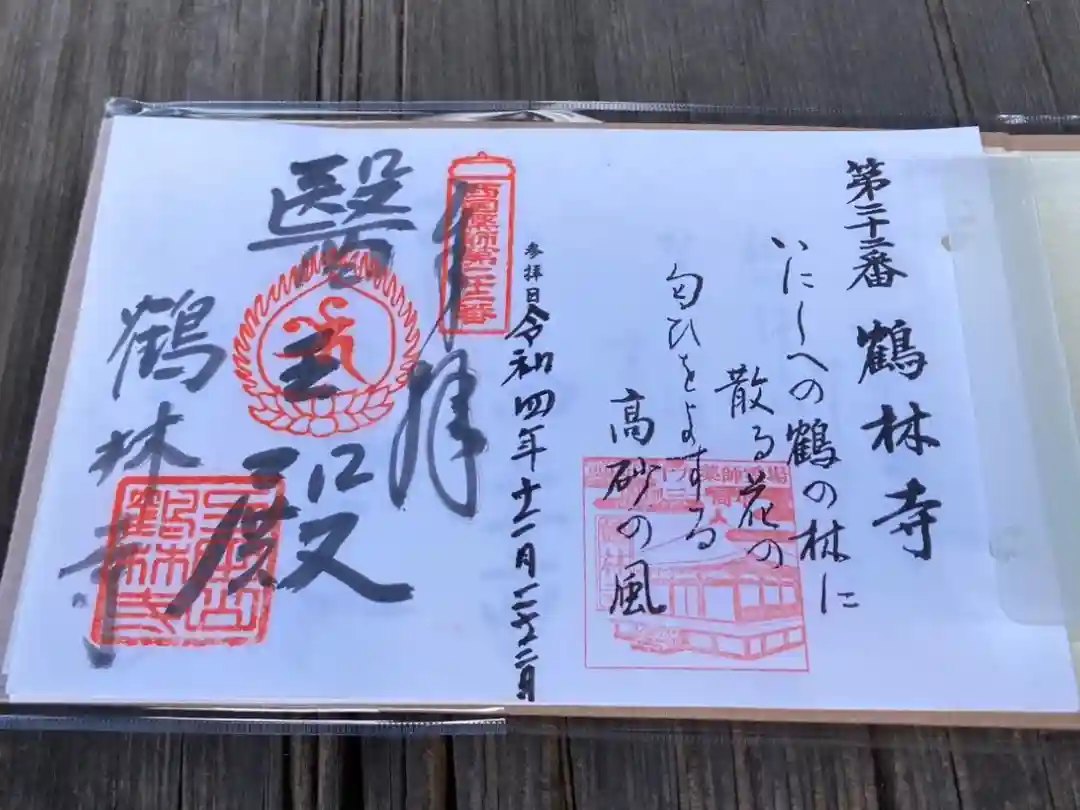 第二十二番 鶴林寺
いにしへの鶴の林に
散る花の
匂ひをよする
高砂の風
参拝日 令和四年
西国薬師第二十二番
奉拝
醫王殿
鶴林寺